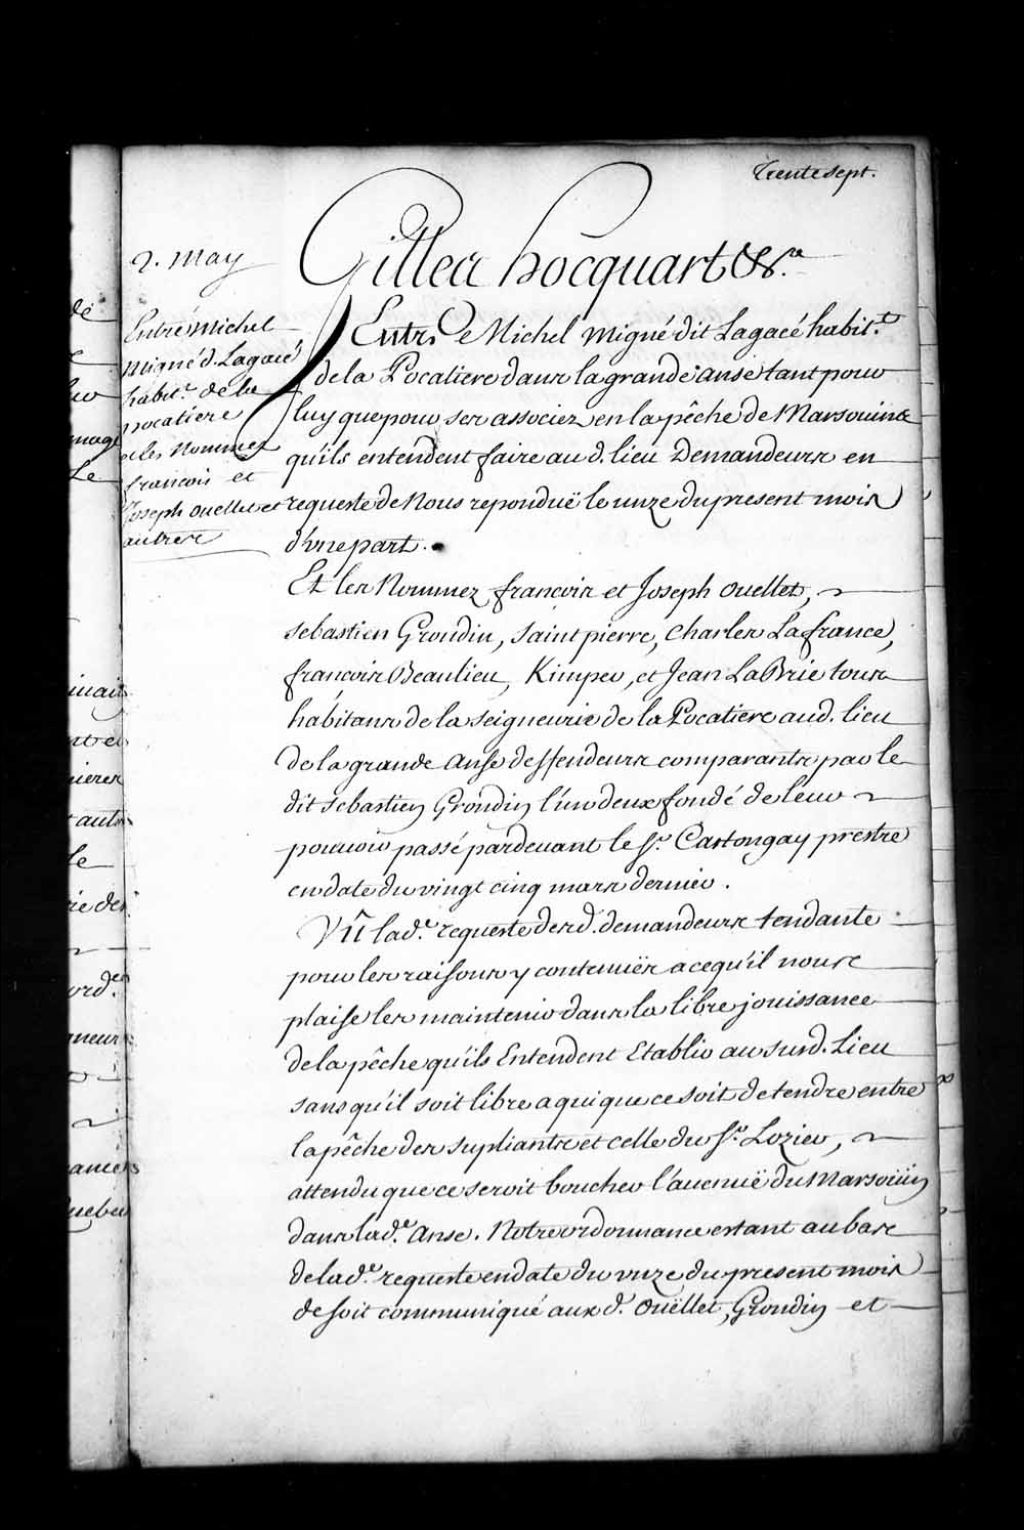 Trente sept.
2. May
Gilles hocquart &c.a
Entre Michel
Migné d. Lagacé
habit.t de la
pocatiere
et les Nommez
francois et
Joseph ouellet et
autres
Entre Michel Migné dit Lagacé habit.t
de la Pocatiere dans la grande anse tant pour
luy que pour ses associez en la pêche de Marsouins
qu'ils entendent faire au d. lieu Demandeurs en
requeste de Nous reponduë le unze du present mois
d'vne part.
Et les Nommez francois et Joseph ouellet,
sebastien Grondin, saint pierre, charles Lafrance,
francois Beaulieu, Kimper, et Jean LaBrie tous
habitans de la seigneurie de la Pocatiere aud. lieu
de la grande anse deffendeurs comparants par le
dit sebastien Grondin l'un deux fondé de leur
pouuoir passé pardeuant le Sr. Castongay prestre
en date du vingt cinq mars dernier.
Vû lad.e requeste desd. demandeurs tendante
pour les raisons y contenuës a ce qu'il nous
plaise les maintenir dans la libre jouissance
de la pêche qu'ils Entendent Etablir au susd. Lieu
sans qu'il soit libre a qui que ce soit de tendre entre
la pêche des supliants et celle du Sr. Lozier,
attendu que ce seroit boucher l'auenuë du Marsoüin
dans lad.e anse. Notre ordonnance estant au bas
de lad.e requeste en date du vnze du present mois
de soit communiqué aux d. ouëllet, Grondin et